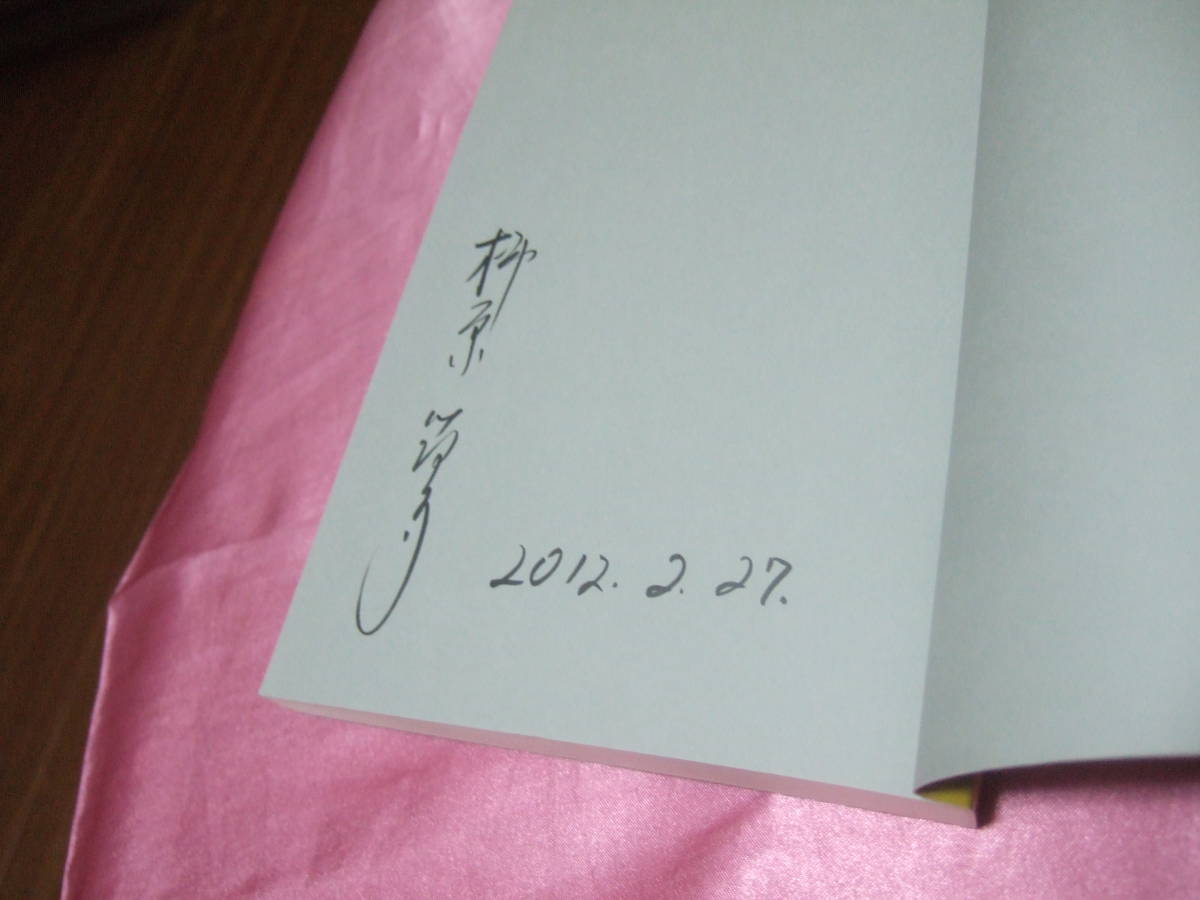 柳原
2012. 2. 27.